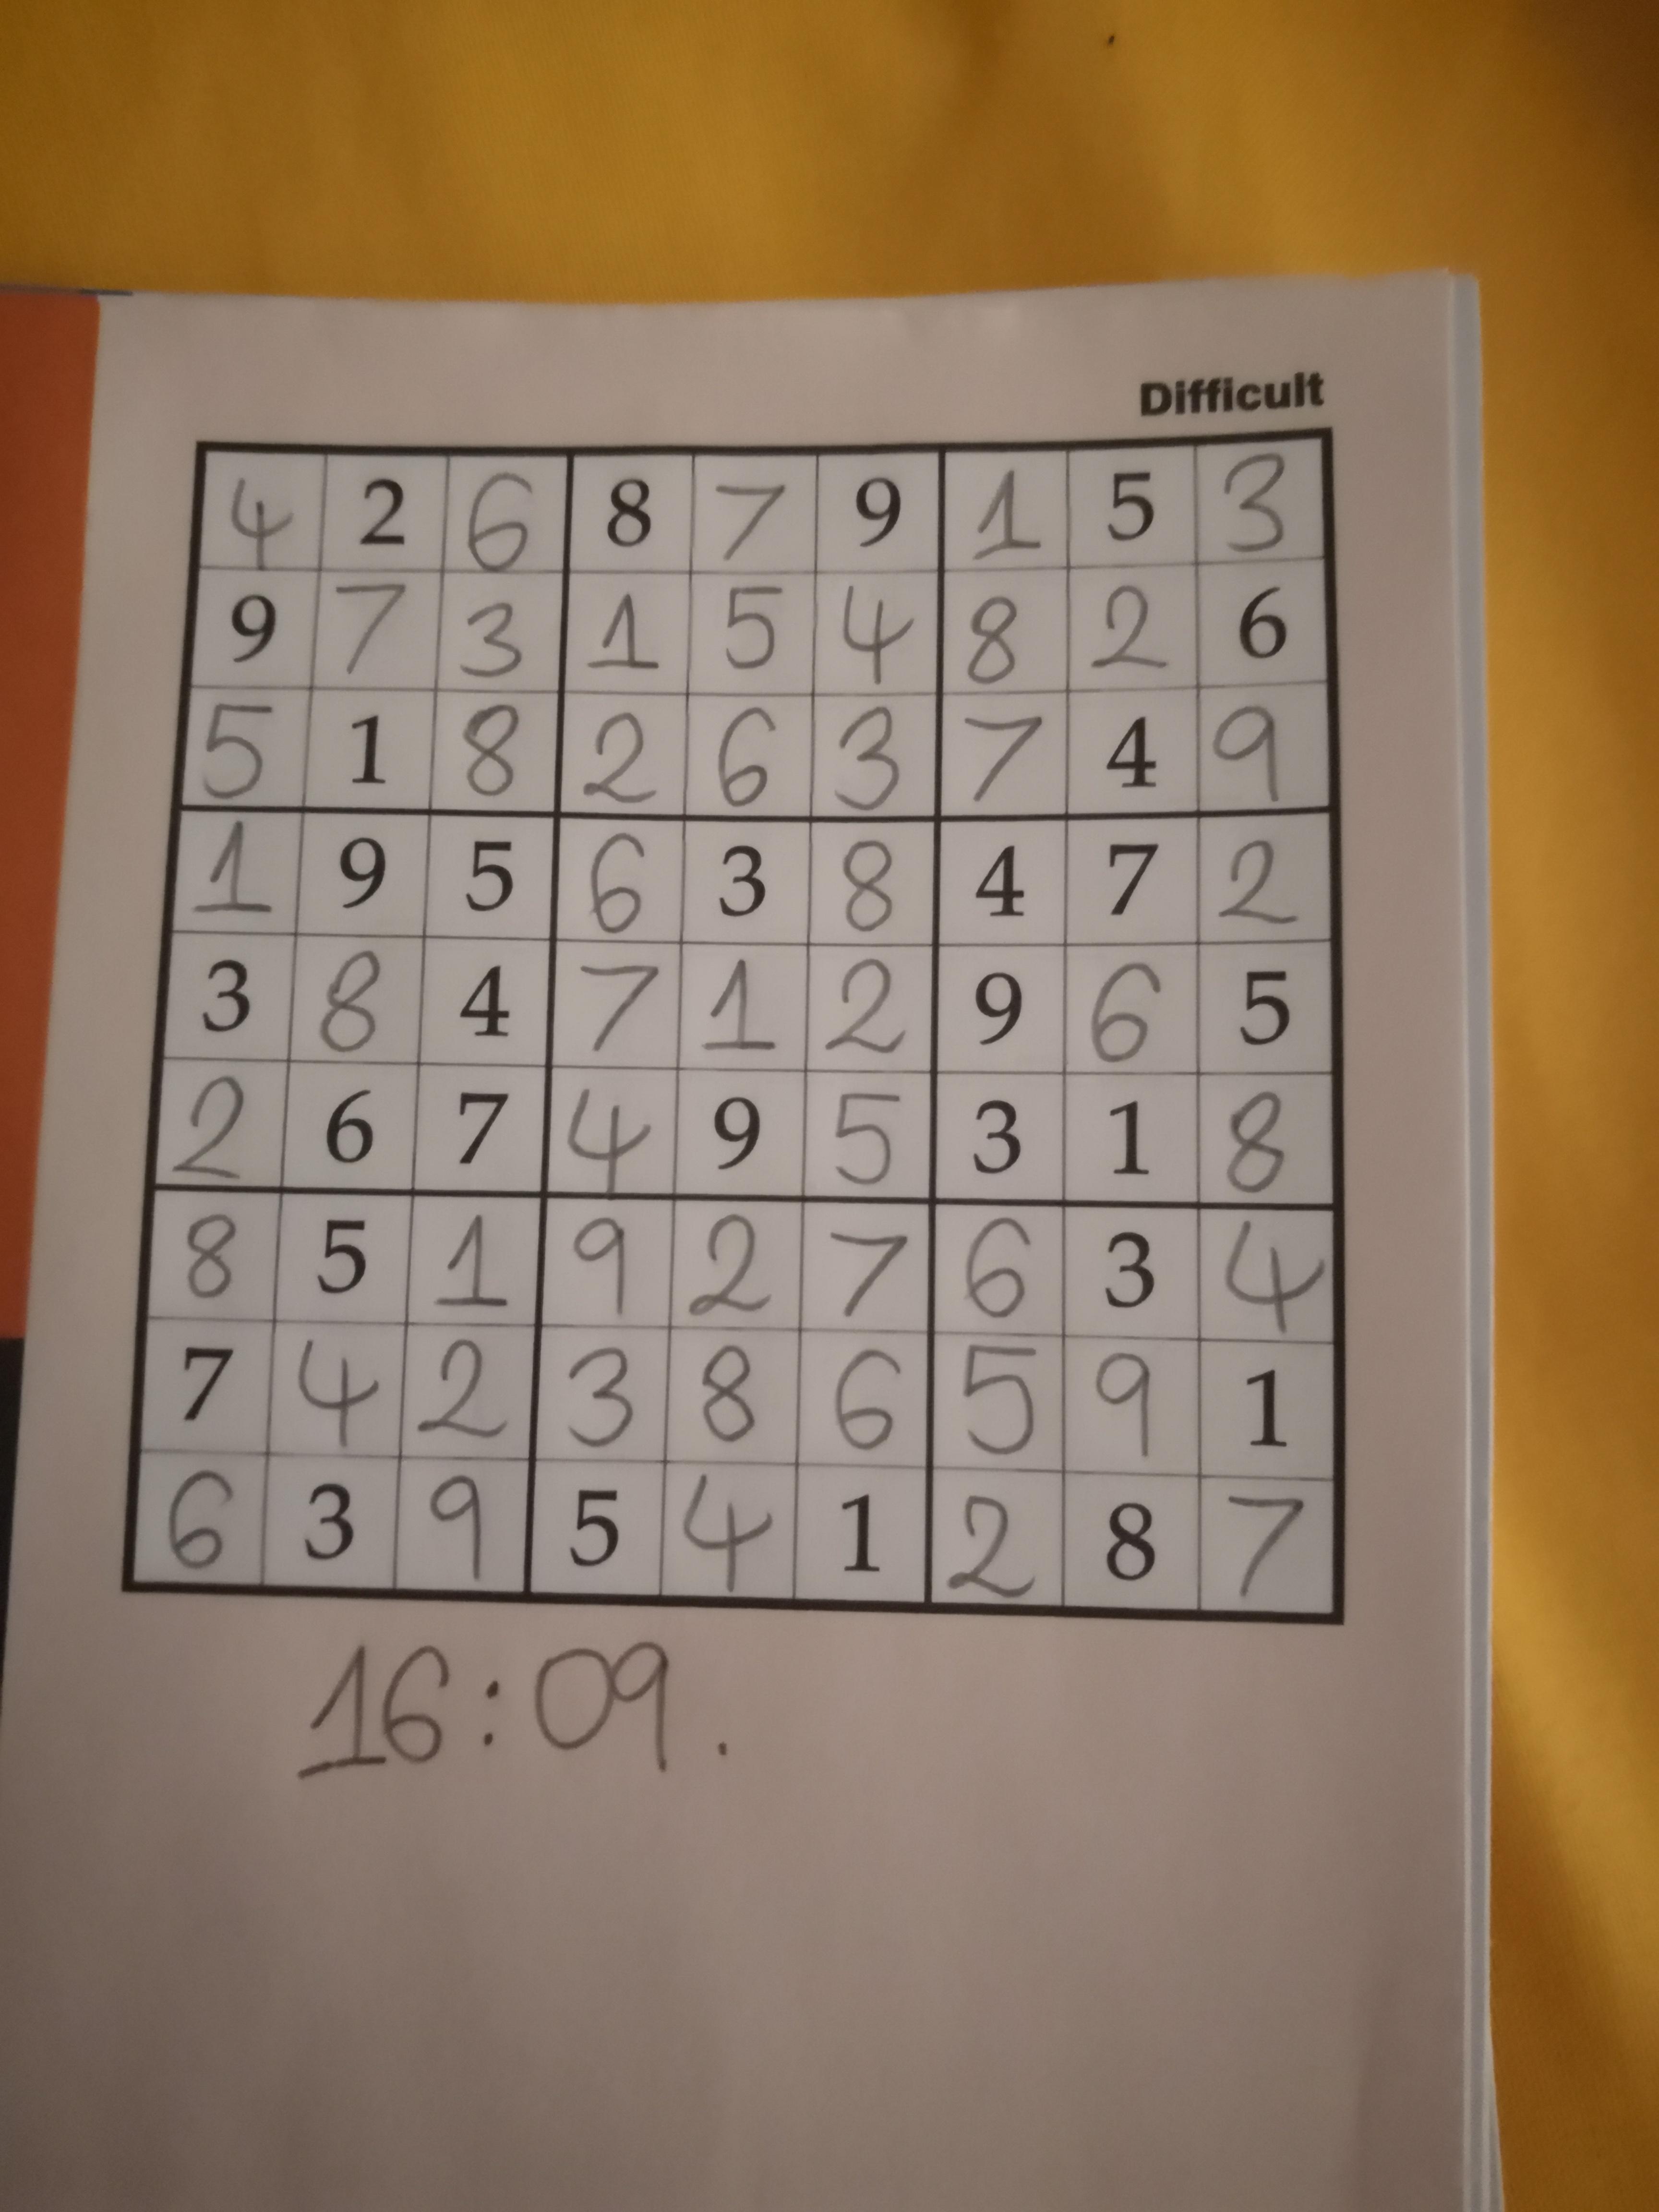 Difficult
4 2 6 8 7 9 1 5 3
9 7 3 1 5 4 8 2 6
5 1 8 2 6 3 7 4 9
1 9 5 6 3 8 4 7 2
3 8 4 7 1 2 9 6 5
2 6 7 4 9 5 3 1 8
8 5 1 9 2 7 6 3 4
7 4 2 3 8 6 5 9 1
6 3 9 5 4 1 2 8 7
16:09.